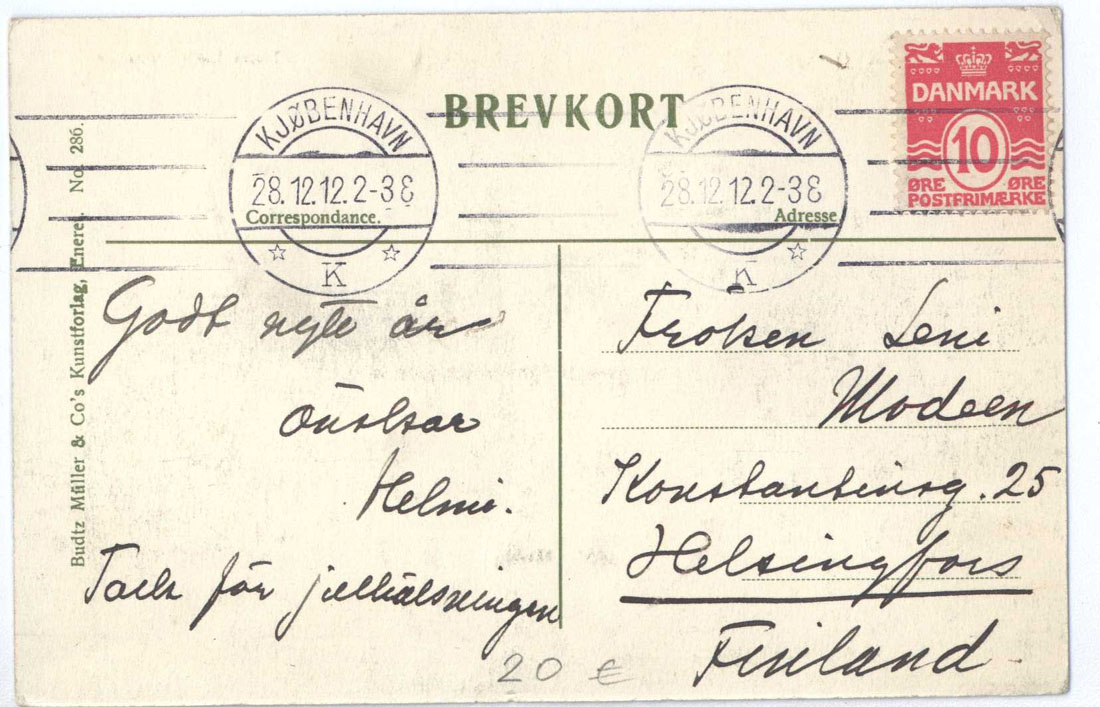 BREVKORT
DANMARK
10
ØRE ØRE
POSTFRIMÆRKE
KJØBENHAVN
28.12.12.2-3E
K
KJØBENHAVN
28.12.12.2-3E
K
Correspondance.
Adresse
Budtz Müller & Co's Kunstforlag, Enere. No. 286.
Godt nyte år
önskar
Helmi.
Tack för julhälsningen
Fröken Leni
Modeen
Konstantinsg. 25
Helsingfors
Finland
20 €